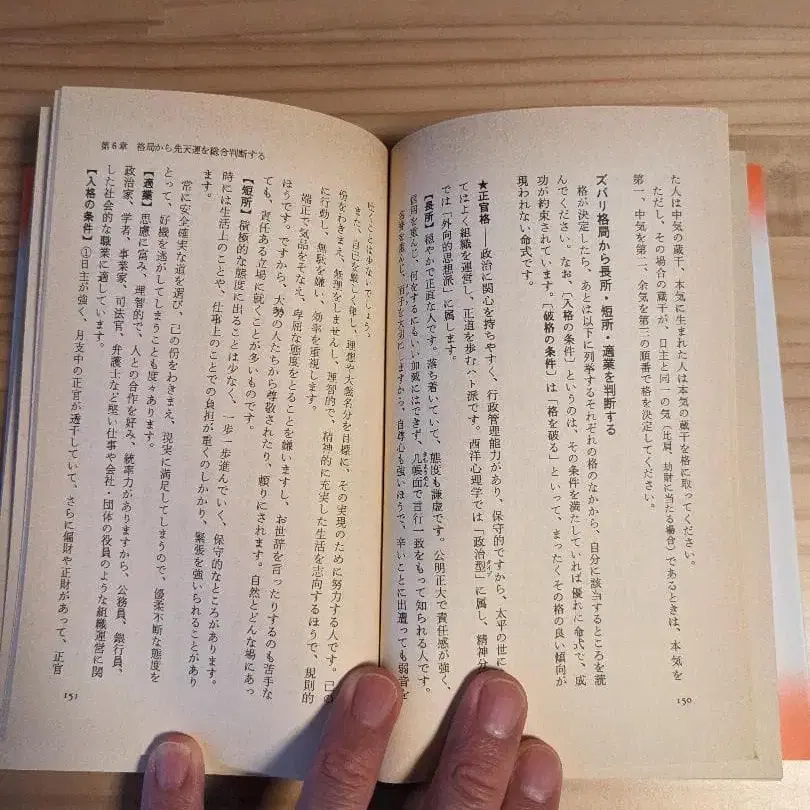 た人は中気の蔵干、本気に生まれた人は本気の蔵干を格に取ってください。
ただし、その場合の蔵干が、日主と同一の気（比肩、劫財に当たる場合）であるときは、本気を
第一、中気を第二、余気を第三の順番で格を決定してください。
ズバリ格局から長所・短所・適業を判断する
格が決定したら、あとは以下に列挙するそれぞれの格のなかから、自分に該当するところを読
んでください。なお、〔入格の条件〕というのは、その条件を満たしていれば優れた命式で、成
功が約束されています。〔破格の条件〕は「格を破る」といって、まったくその格の良い傾向が
現われない命式です。
★正官格――政治に関心を持ちやすく、行政管理能力があり、保守的ですから、太平の世に
てはよく組織を運営し、正道を歩むハト派です。西洋心理学では「政治型」に属し、精神分
では「外向的思想派」に属します。
【長所】穏やかで正直な人です。落ち着いていて、態度も謙虚です。公明正大で責任感が強く、
信用を重んじ、何をするにもいい加減にはできず、几帳面で言行一致をもって知られる人です。
名誉を重んじ、面子を大切にしますから、自尊心も強いほうで、辛いことに出遭っても弱音を
150
第6章 格局から先天運を総合判断する
はくことは少ないでしょう。
また、自己を厳しく律し、理想や大義名分を目標に、その実現のために努力する人です。己の
份をわきまえ、無理をしませんし、理智的で、精神的に充実した生活を志向するほうで、規則的
に行動し、無駄を嫌い、効率を重視します。
端正で気品をそなえ、卑屈な態度をとることを嫌いますし、お世辞を言ったりするのも苦手な
ほうです。ですから、大勢の人たちから尊敬されたり、頼りにされます。自然とどんな場にあっ
ても、責任ある立場に就くことが多いものです。
【短所】積極的な態度に出ることは少なく、一歩一歩進んでいく、保守的なところがあります。
時には生活上のことや、仕事上のことでの負担が重くのしかかり、緊張を強いられることがあり
ます。
常に安全確実な道を選び、己の份をわきまえ、現実に満足してしまうので、優柔不断な態度を
とって、好機を逃がしてしまうことも度々あります。
【適業】思慮に富み、理智的で、人との合作を好み、統率力がありますから、公務員、銀行員、
政治家、学者、事業家、司法官、弁護士など堅い仕事や会社・団体の役員のような組織運営に関
した社会的な職業に適しています。
【入格の条件】①日主が強く、月支中の正官が透干していて、さらに偏財や正財があって、正官
151